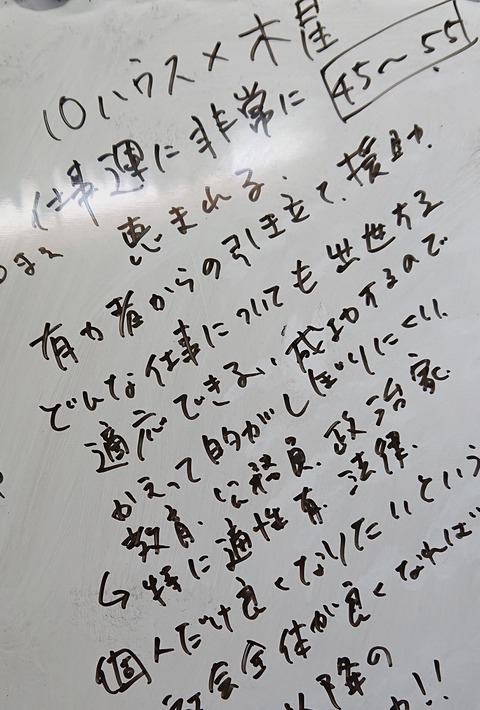 10ハウス×木星
45〜55
仕事運に非常に
恵まれる。
有力者からの引き立て、援助。
どんな仕事についても出世する
適応できる、成功するので
かえって的がしぼりにくい。
教育、公務員、政治家
↳特に適性有 法律
個人だけ良くなりたいという
社会全体が良くなれば
以降の
!!